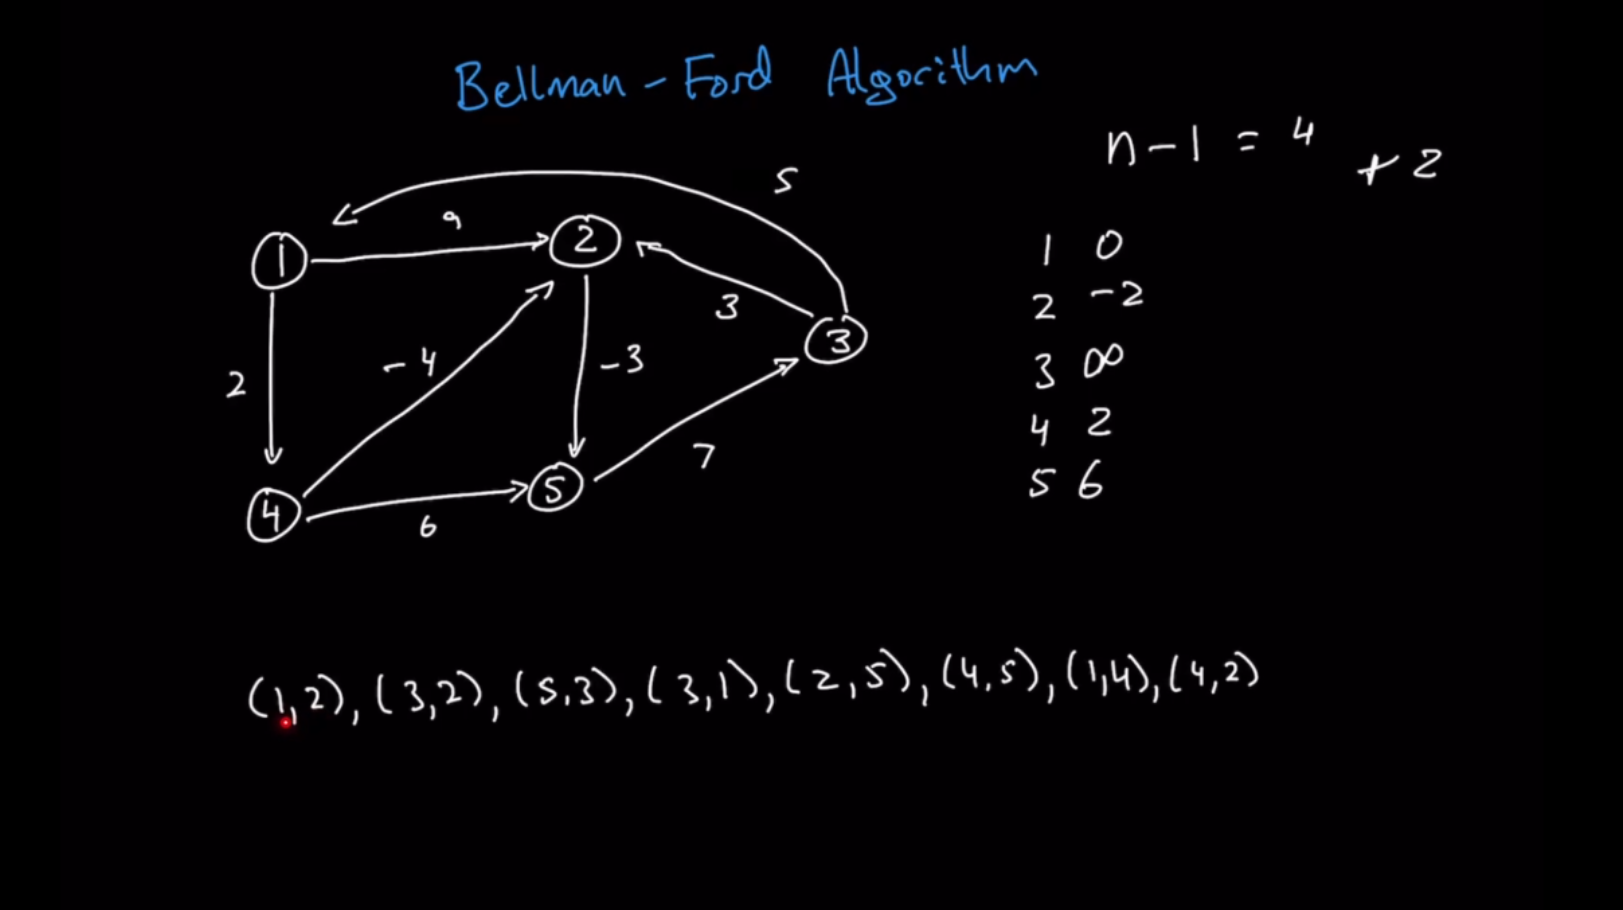 Bellman-Ford Algorithm
n-1 = 4
+2
5
9
1
2
3
3
2
-4
-3
7
4
5
6
1 0
2 -2
3 ∞
4 2
5 6
(1,2), (3,2), (5,3), (3,1), (2,5), (4,5), (1,4), (4,2)